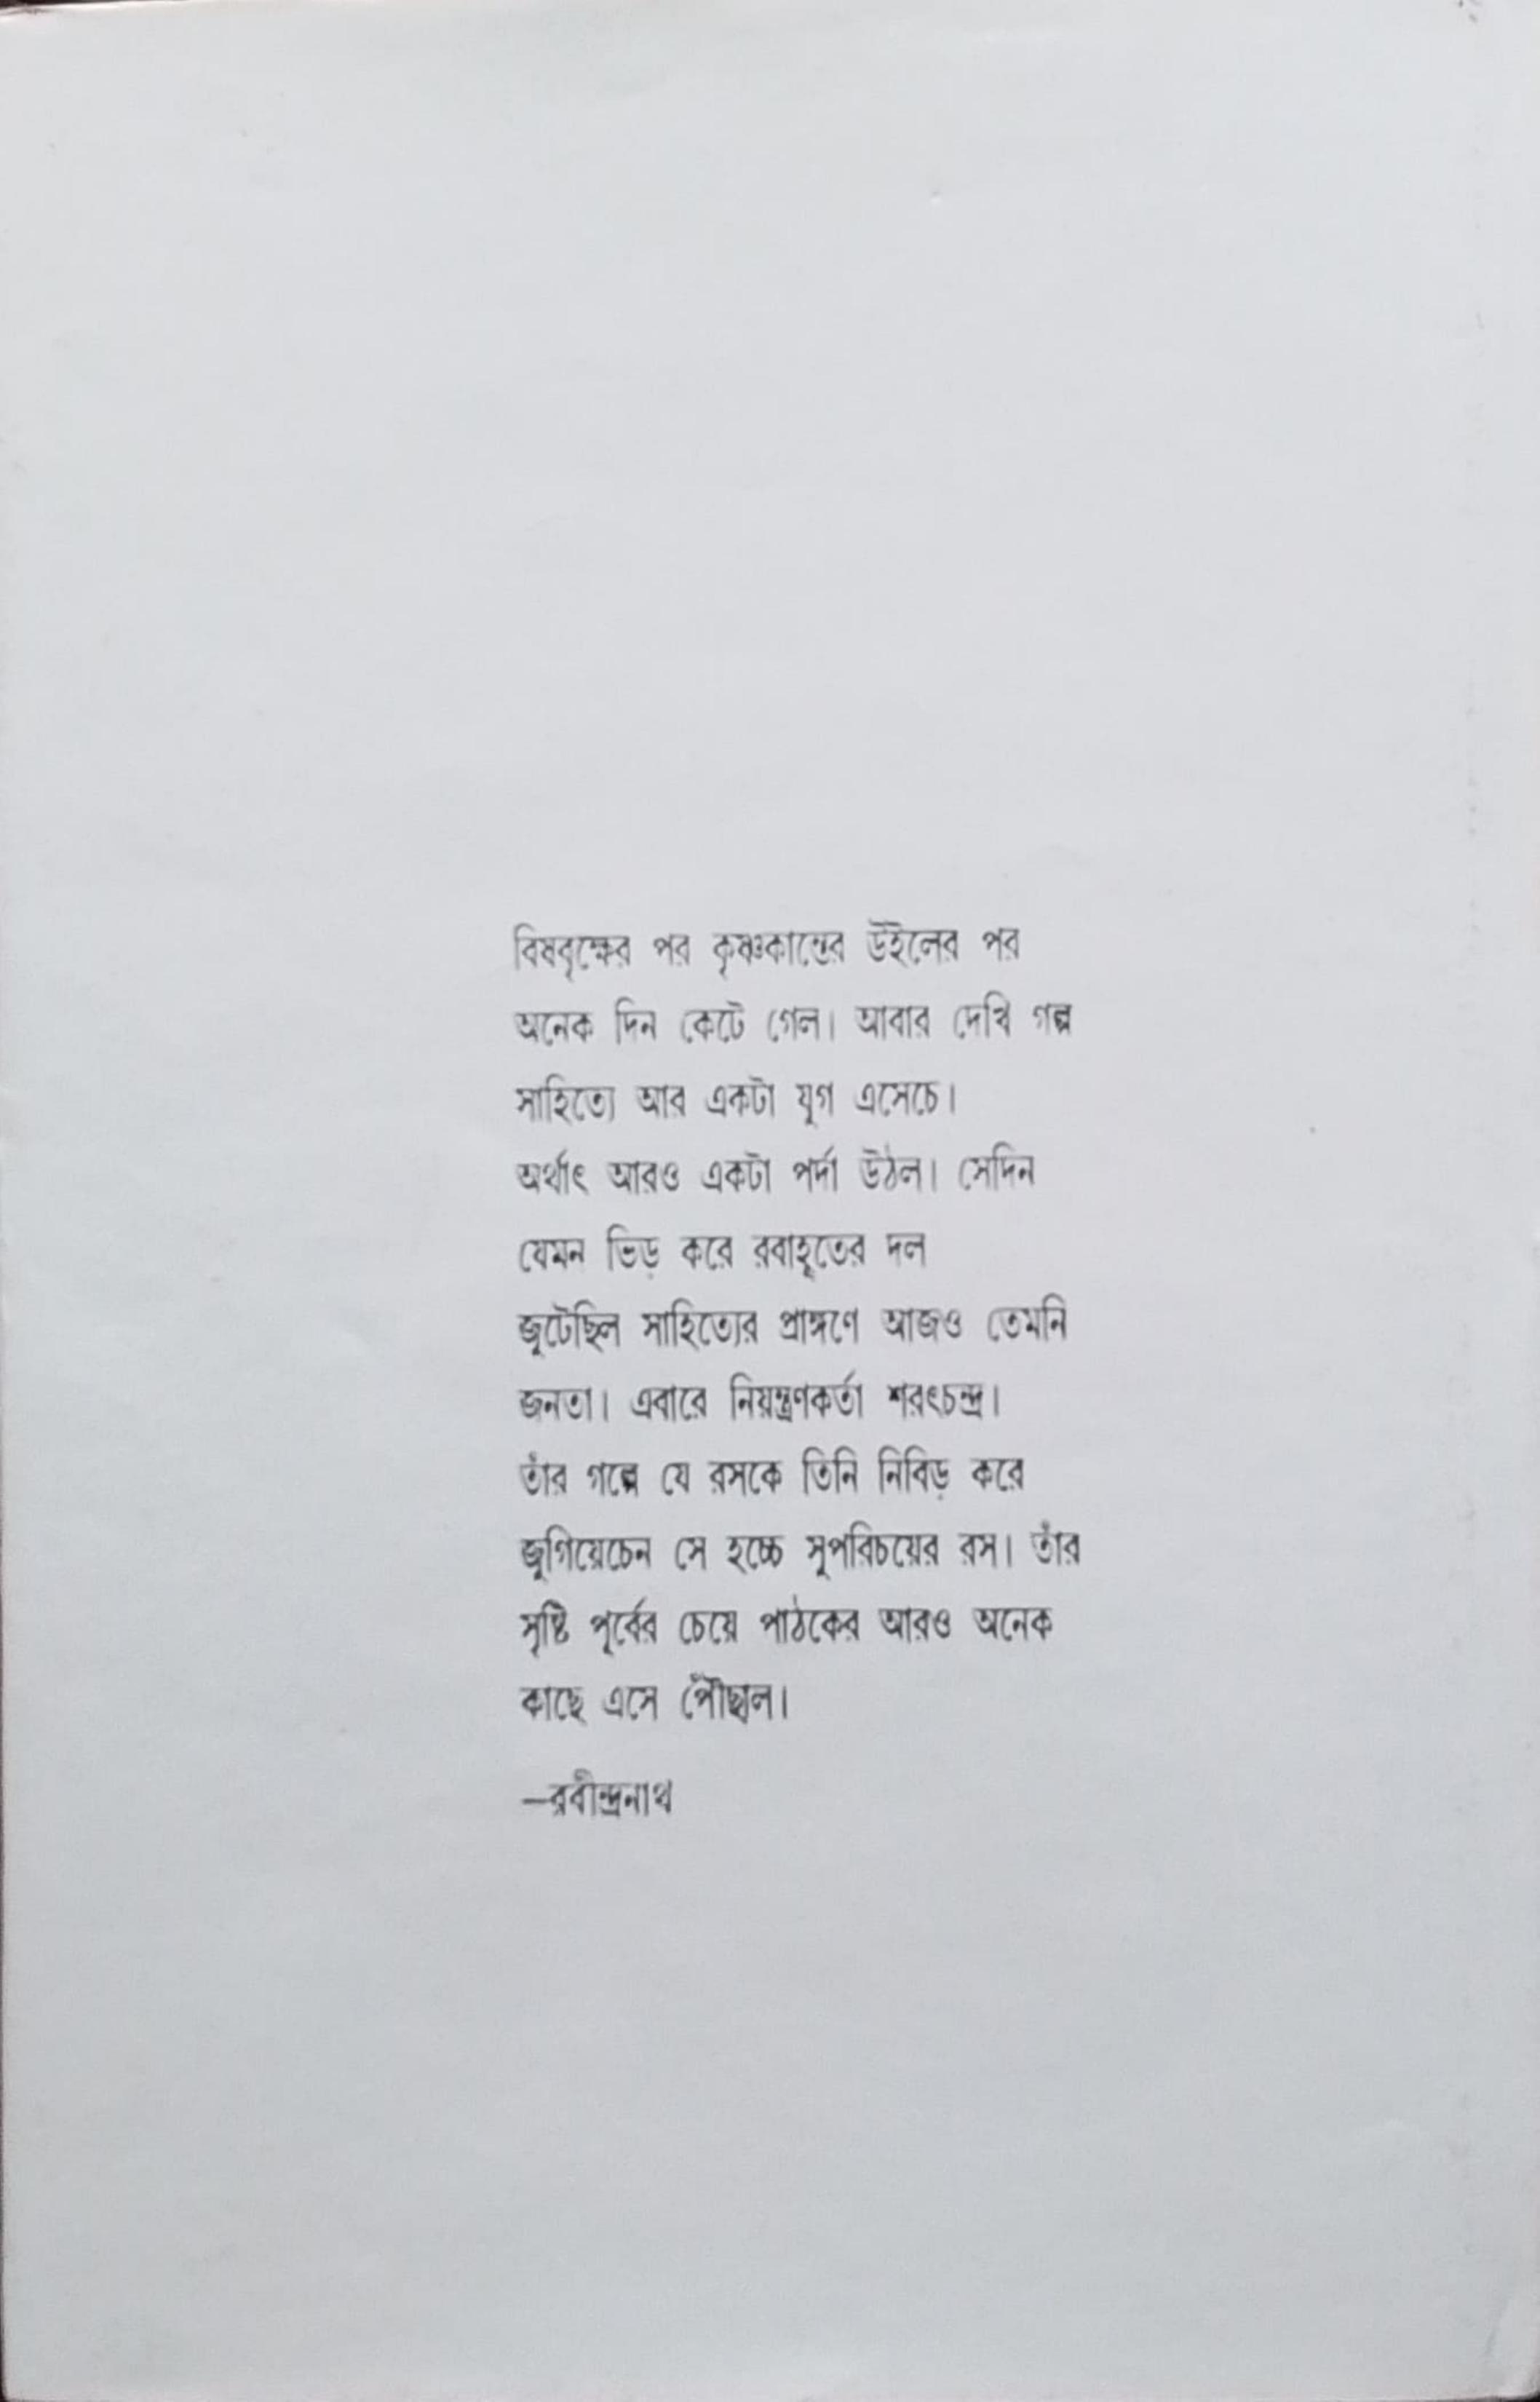 বিষবৃক্ষের পর কৃষ্ণকান্তের উইলের পর
অনেক দিন কেটে গেল। আবার দেখি গল্প
সাহিত্যে আর একটা যুগ এসেচে।
অর্থাৎ আরও একটা পর্দা উঠল। সেদিন
যেমন ভিড় করে রবাহূতের দল
জুটেছিল সাহিত্যের প্রাঙ্গণে আজও তেমনি
জনতা। এবারে নিয়ন্ত্রণকর্তা শরৎচন্দ্র।
তাঁর গল্পে যে রসকে তিনি নিবিড় করে
জুগিয়েচেন সে হচ্চে সুপরিচয়ের রস। তাঁর
সৃষ্টি পূর্বের চেয়ে পাঠকের আরও অনেক
কাছে এসে পৌঁছল।
—রবীন্দ্রনাথ